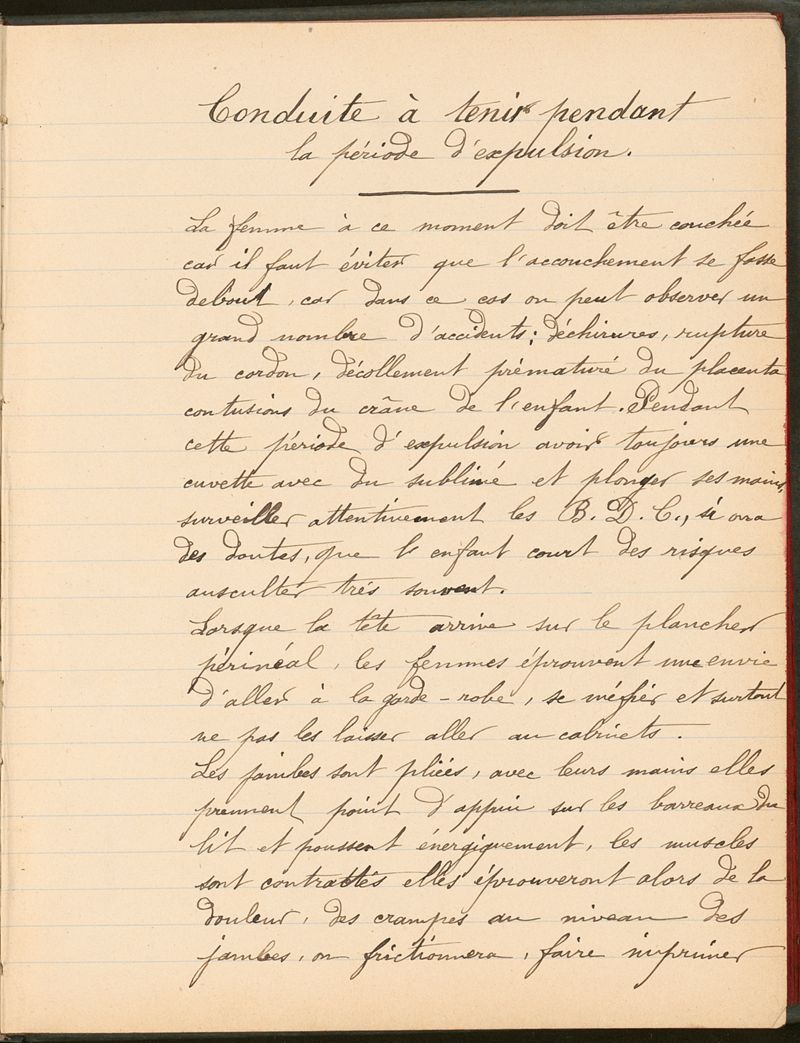 Conduite à tenir pendant
la période d'expulsion.
La femme à ce moment doit être couchée
car il faut éviter que l'accouchement se fasse
debout, car dans ce cas on peut observer un
grand nombre d'accidents; déchirures, rupture
du cordon, décollement prématuré du placenta
contusions du crâne de l'enfant. Pendant
cette période d'expulsion avoir toujours une
cuvette avec du sublimé et plonger ses mains,
surveiller attentivement les B. D. C., si on a
des doutes, que l'enfant court des risques
ausculter très souvent.
Lorsque la tête arrive sur le plancher
périnéal, les femmes éprouvent une envie
d'aller à la garde-robe, se méfier et surtout
ne pas les laisser aller au cabinets.
Les jambes sont pliées, avec leurs mains elles
prennent point d'appui sur les barreaux du
lit et poussent énergiquement, les muscles
sont contractés elles éprouveront alors de la
douleur, des crampes au niveau des
jambes, on frictionnera, faire imprimer